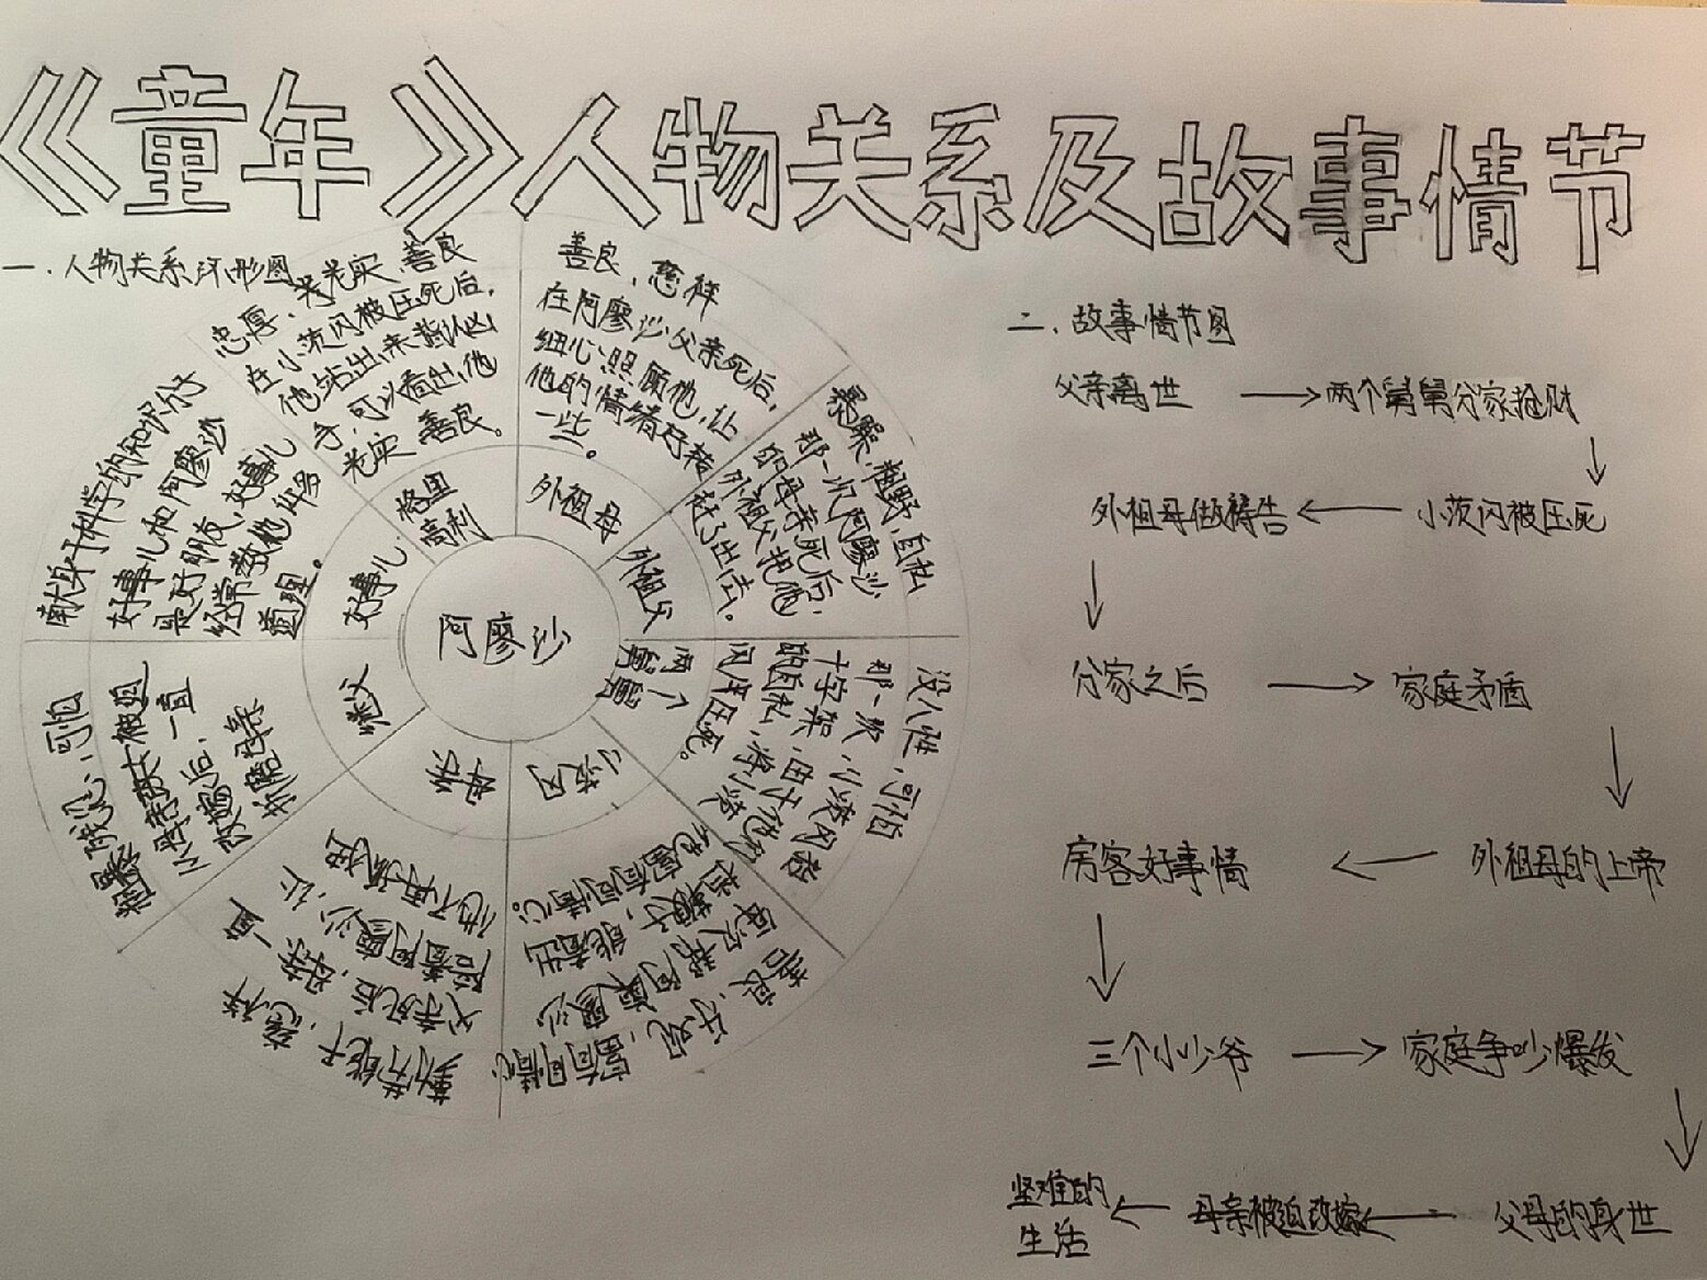 《童年》人物关系及故事情节
一.人物关系环形图
阿廖沙
外祖母
善良、慈祥
在阿廖沙父亲死后,
细心照顾他,让
他的情绪好转
一些。
外祖父
暴躁.粗野,自私
那一次阿廖沙
的母亲死后,
外祖父把他
赶了出去。
两个
舅舅
没人性,可怕
那一次,小茨冈搭
十字架,由于他们
的自私,将小茨
冈压死。
小茨冈
善良、乐观、富有同情心
两次帮阿廖沙
挡鞭子,能看出
他富有同情心。
母亲
勤劳能干、慈祥
父亲死后,母亲一直
陪着阿廖沙,让
他不再孤独
继父
粗暴、狠心、可怕
从母亲第二次被迫
改嫁后,一直
好事儿
献身于科学的知识分子
好事儿和阿廖沙
是好朋友,好事儿
经常教他许多
道理。
格里
高利
忠厚、老实、善良
在小茨冈被压死后,
他站出来指认凶
手,可以看出他
老实善良。
二.故事情节图
父亲离世 → 两个舅舅分家抢财
↓
外祖母做祷告 ← 小茨冈被压死
↓
分家之后 → 家庭矛盾
↓
房客好事情 ← 外祖母的上帝
↓
三个小少爷 → 家庭争吵爆发
↓
坚难的 ← 母亲被迫改嫁 ← 父母的身世
生活